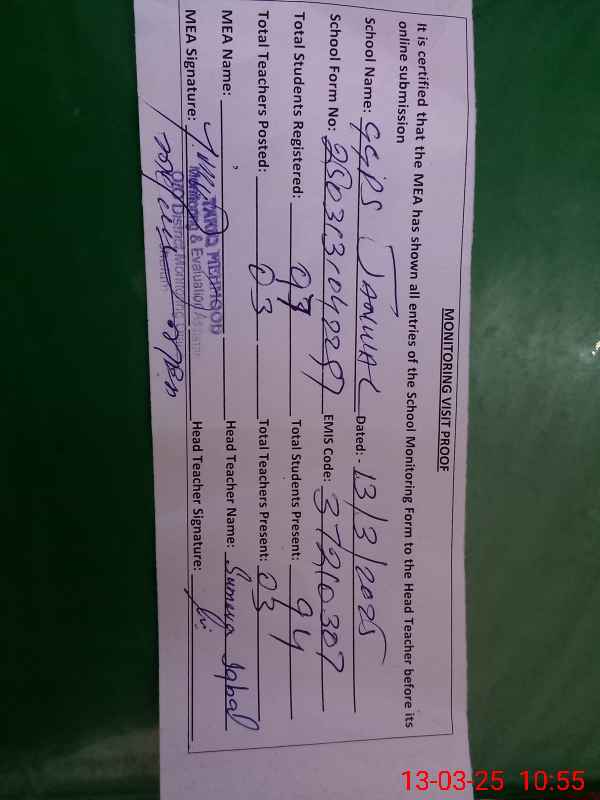 MONITORING VISIT PROOF
It is certified that the MEA has shown all entries of the School Monitoring Form to the Head Teacher before its
online submission
School Name: GGPS JANWAL Dated: - 13/3/2025
School Form No: 2503131042297 EMIS Code: 37210307
Total Students Registered: 97 Total Students Present: 94
Total Teachers Posted: 03 Total Teachers Present: 03
MEA Name: TARIQ MEHMOOD Head Teacher Name: Sumeya Iqbal
Monitoring & Evaluation Assistant
MEA Signature: Head Teacher Signature:
O/O District Monitoring
13-03-25 10:55